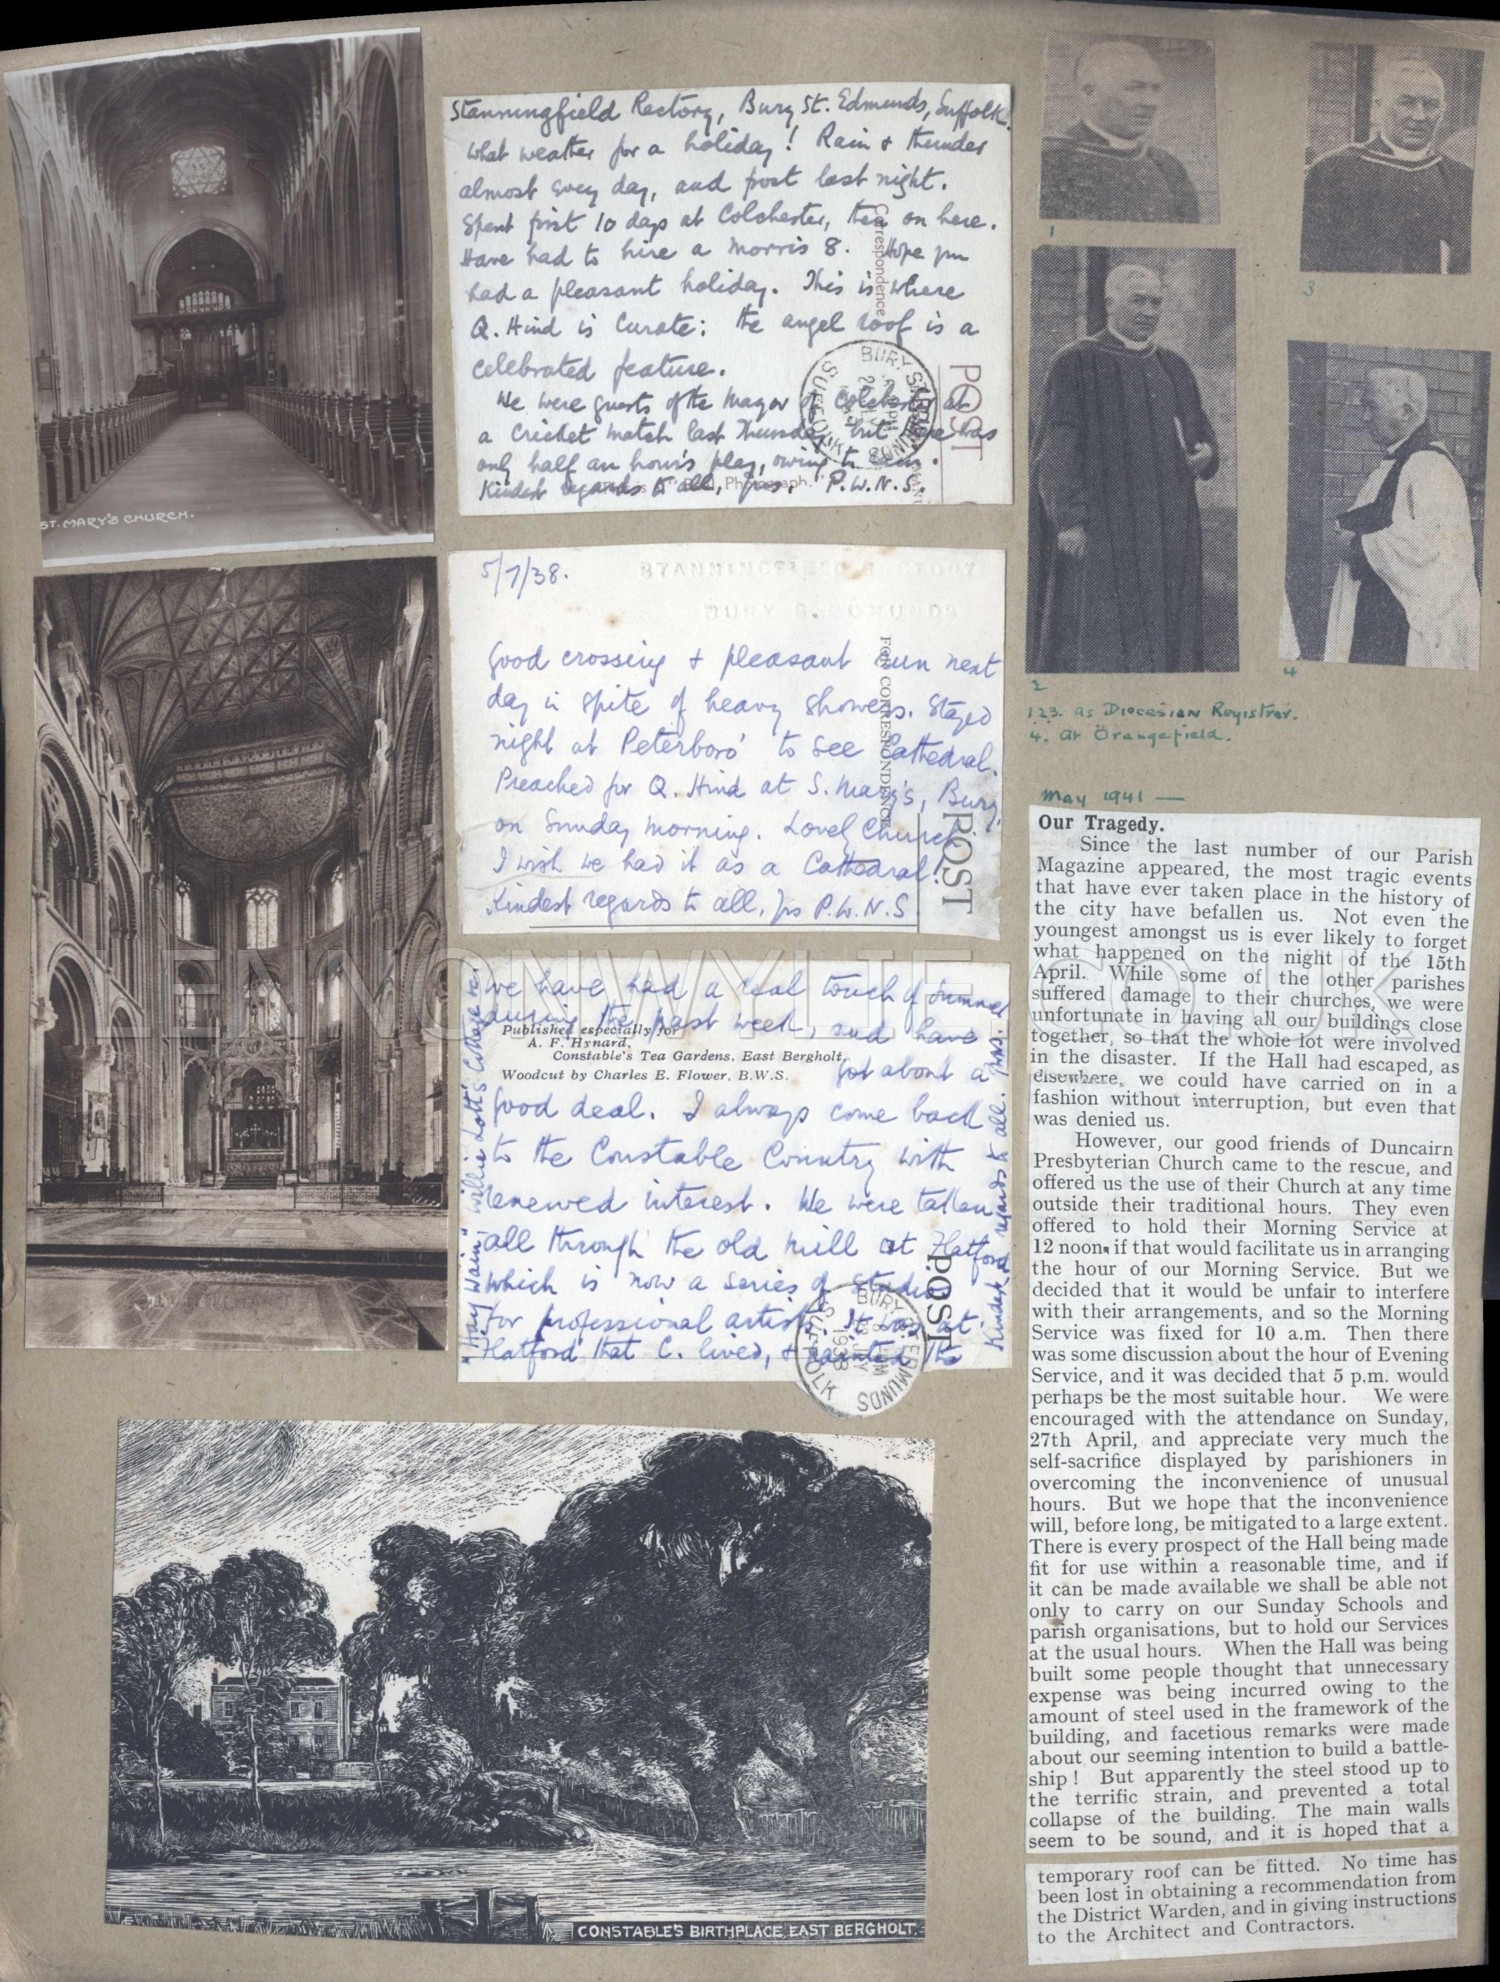 ST. MARY'S CHURCH.
Stanningfield Rectory, Bury St. Edmunds, Suffolk.
What weather for a holiday! Rain & thunder
almost every day, and frost last night.
Spent first 10 days at Colchester, then on here.
Have had to hire a Morris 8. Hope you
had a pleasant holiday. This is where
Q. Hind is Curate: the angel roof is a
celebrated feature.
We were guests of the Mayor of Colchester at
a Cricket match last Thursday, but there was
only half an hour's play, owing to rain.
Kindest regards to all, yrs. P.W.N.S.
Correspondence
POST
BURY ST. EDMUNDS
SUFFOLK
5/7/38.
STANNINGFIELD RECTORY
BURY S. EDMUNDS
Good crossing & pleasant run next
day in spite of heavy showers. Stayed
night at Peterboro' to see Cathedral.
Preached for Q. Hind at S. Mary's, Bury,
on Sunday morning. Lovely Church
I wish we had it as a Cathedral!
Kindest regards to all, yrs P.W.N.S.
FOR CORRESPONDENCE
POST
We have had a real touch of Summer
during the past week, and have
Published especially for
A. F. Hynard,
Constable's Tea Gardens, East Bergholt,
Woodcut by Charles E. Flower, B.W.S.
got about a
good deal. I always come back
to the Constable Country with
renewed interest. We were taken
all through the old mill at Flatford
which is now a series of studios
for professional artists. It was at
Flatford that C. lived, & painted the
"Hay Wain" Willie Lott's Cottage
Kindest regards to all.
POST
BURY ST. EDMUNDS
1938
SUFFOLK
CONSTABLE'S BIRTHPLACE, EAST BERGHOLT.
1
3
2
4
1 2 3. as Diocesian Registrar.
4. at Orangefield.
May 1941 —
Our Tragedy.
Since the last number of our Parish
Magazine appeared, the most tragic events
that have ever taken place in the history of
the city have befallen us. Not even the
youngest amongst us is ever likely to forget
what happened on the night of the 15th
April. While some of the other parishes
suffered damage to their churches, we were
unfortunate in having all our buildings close
together, so that the whole lot were involved
in the disaster. If the Hall had escaped, as
elsewhere, we could have carried on in a
fashion without interruption, but even that
was denied us.
However, our good friends of Duncairn
Presbyterian Church came to the rescue, and
offered us the use of their Church at any time
outside their traditional hours. They even
offered to hold their Morning Service at
12 noon. if that would facilitate us in arranging
the hour of our Morning Service. But we
decided that it would be unfair to interfere
with their arrangements, and so the Morning
Service was fixed for 10 a.m. Then there
was some discussion about the hour of Evening
Service, and it was decided that 5 p.m. would
perhaps be the most suitable hour. We were
encouraged with the attendance on Sunday,
27th April, and appreciate very much the
self-sacrifice displayed by parishioners in
overcoming the inconvenience of unusual
hours. But we hope that the inconvenience
will, before long, be mitigated to a large extent.
There is every prospect of the Hall being made
fit for use within a reasonable time, and if
it can be made available we shall be able not
only to carry on our Sunday Schools and
parish organisations, but to hold our Services
at the usual hours. When the Hall was being
built some people thought that unnecessary
expense was being incurred owing to the
amount of steel used in the framework of the
building, and facetious remarks were made
about our seeming intention to build a battle-
ship! But apparently the steel stood up to
the terrific strain, and prevented a total
collapse of the building. The main walls
seem to be sound, and it is hoped that a
temporary roof can be fitted. No time has
been lost in obtaining a recommendation from
the District Warden, and in giving instructions
to the Architect and Contractors.
LENNONWYLIE.CO.UK